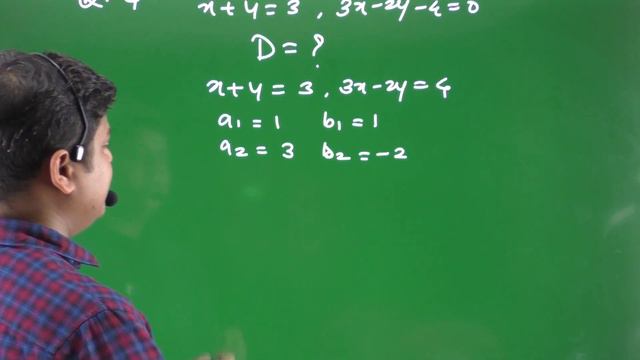 x + y = 3 , 3x - 2y - 4 = 0
D = ?
x + y = 3 , 3x - 2y = 4
a1 = 1 b1 = 1
a2 = 3 b2 = -2